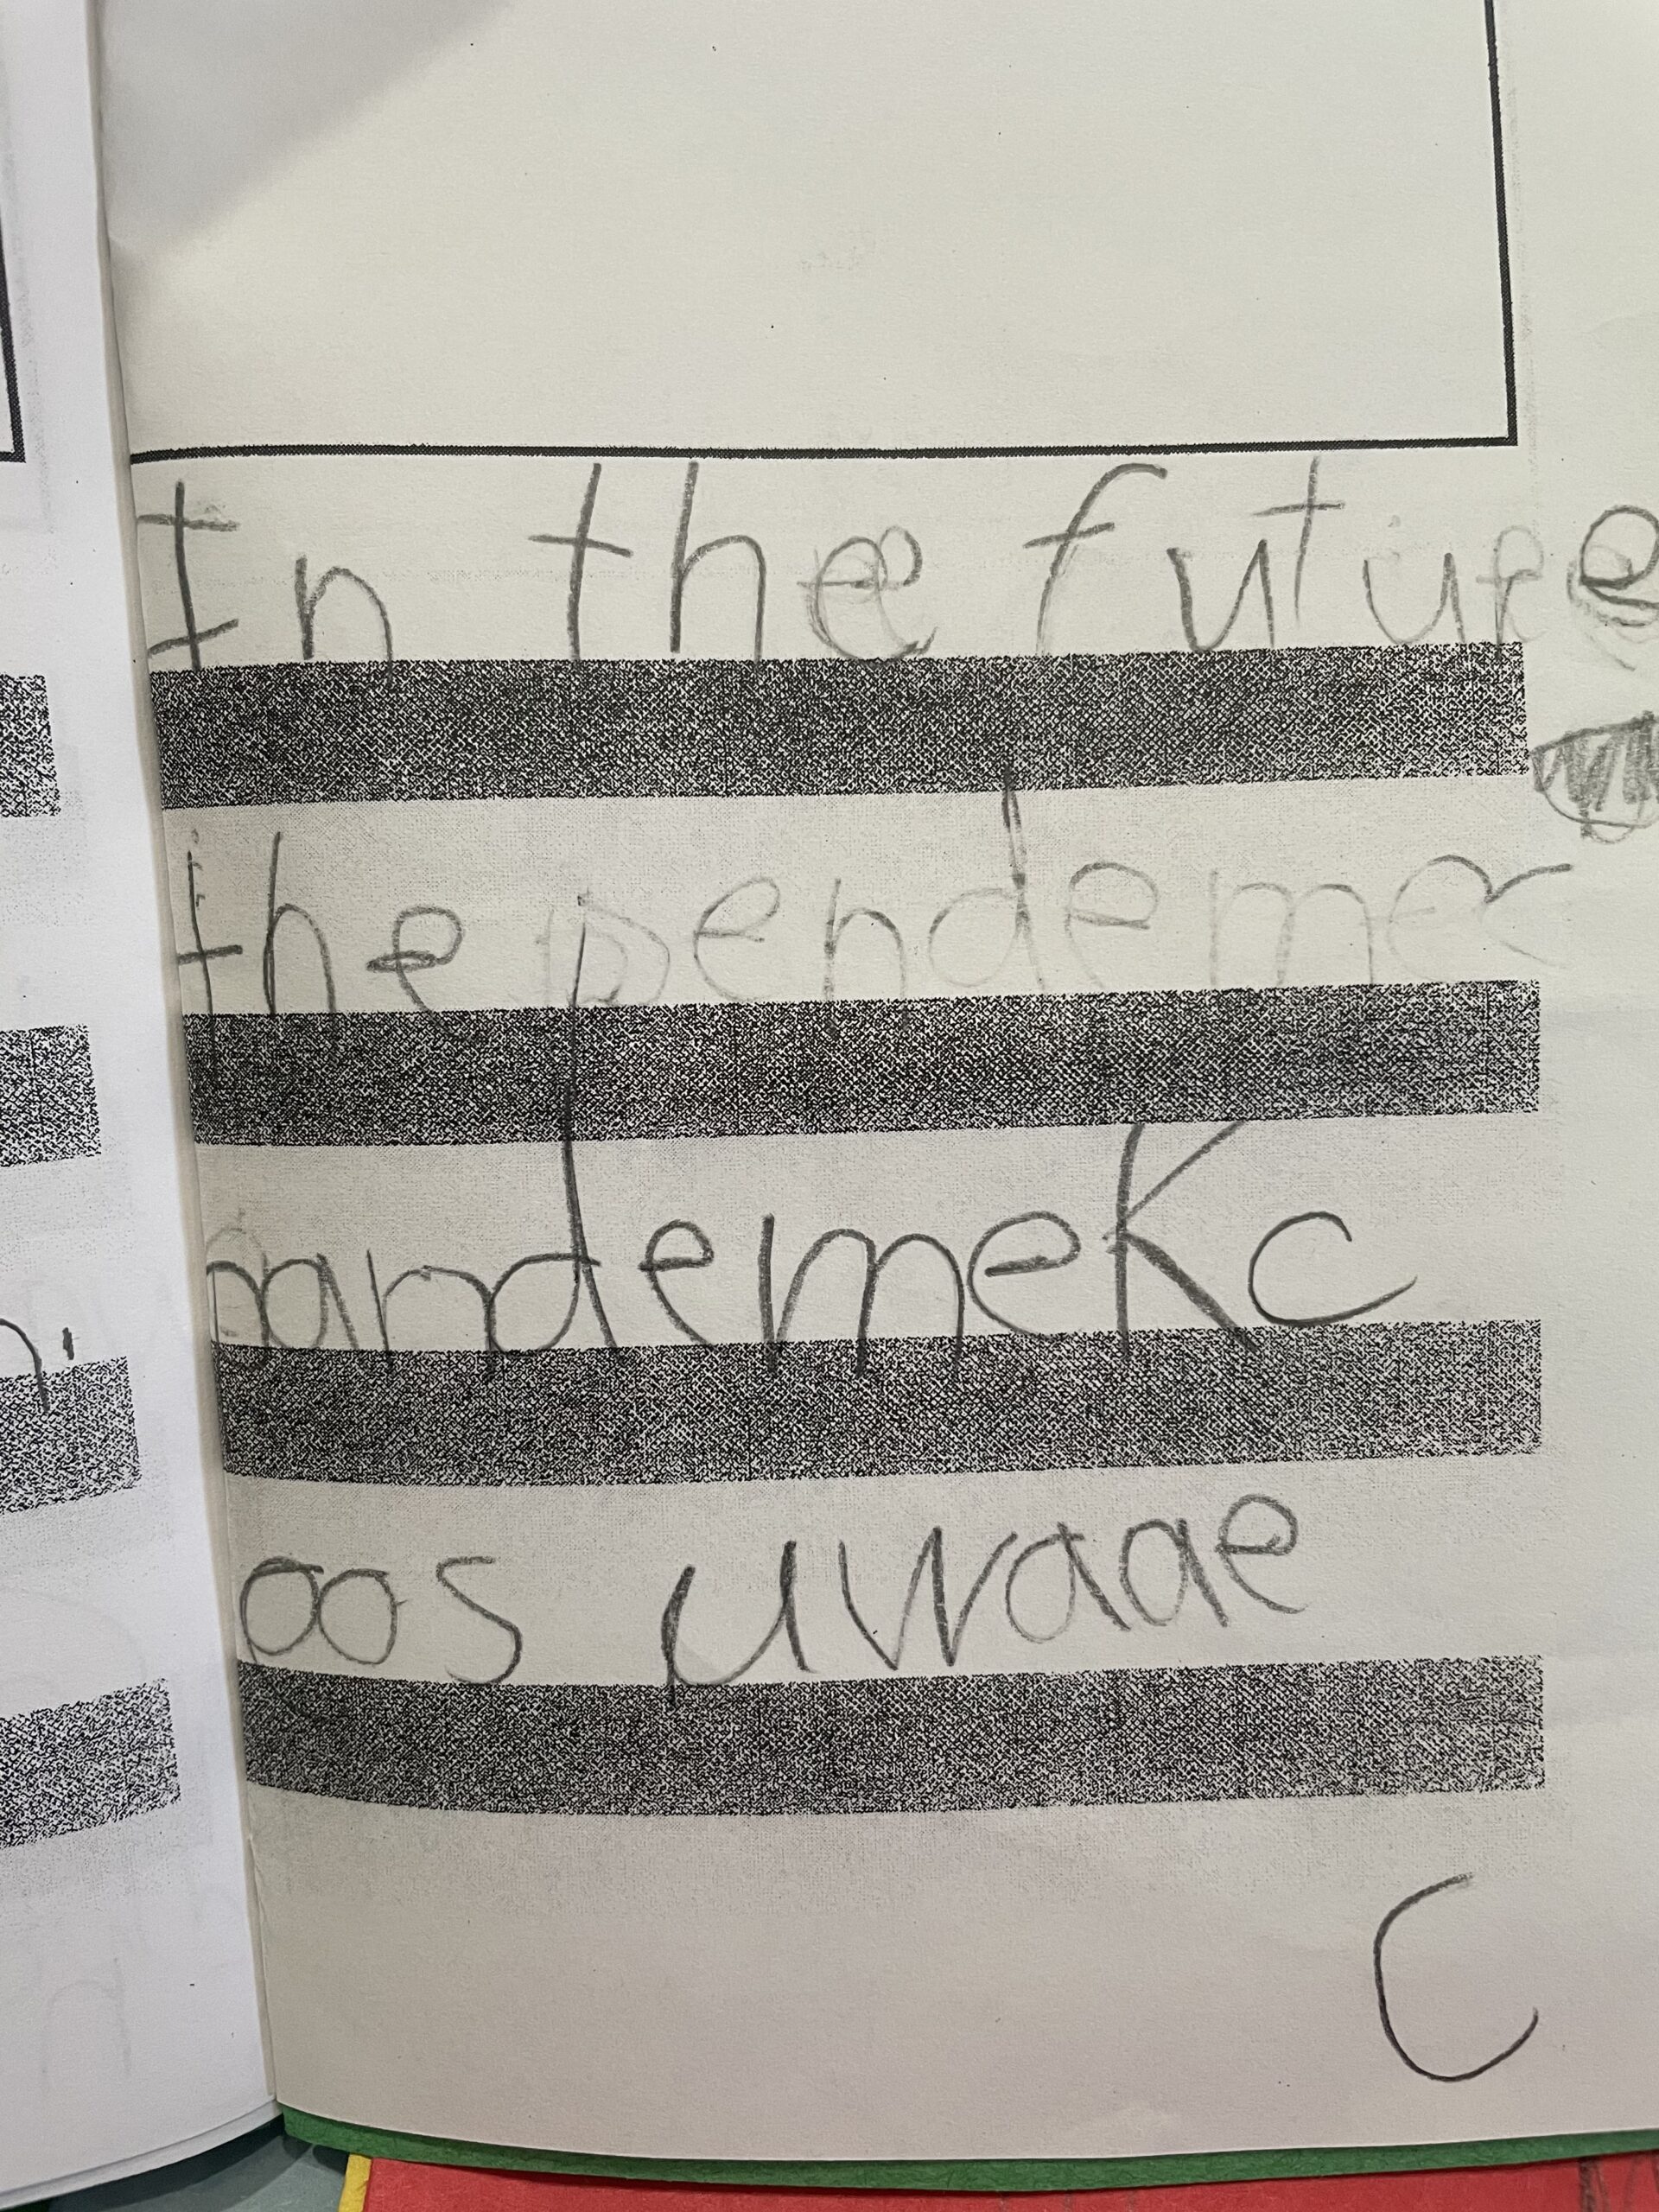 In the future
the pendemc
pandemeKc
oos uwaae
C
n.